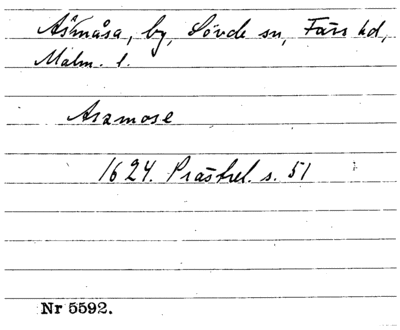 Åsmåsa, by, Sövde sn, Färs hd,
Malm. l.
Aszmose
1624. Prästrel. s. 51
Nr 5592.